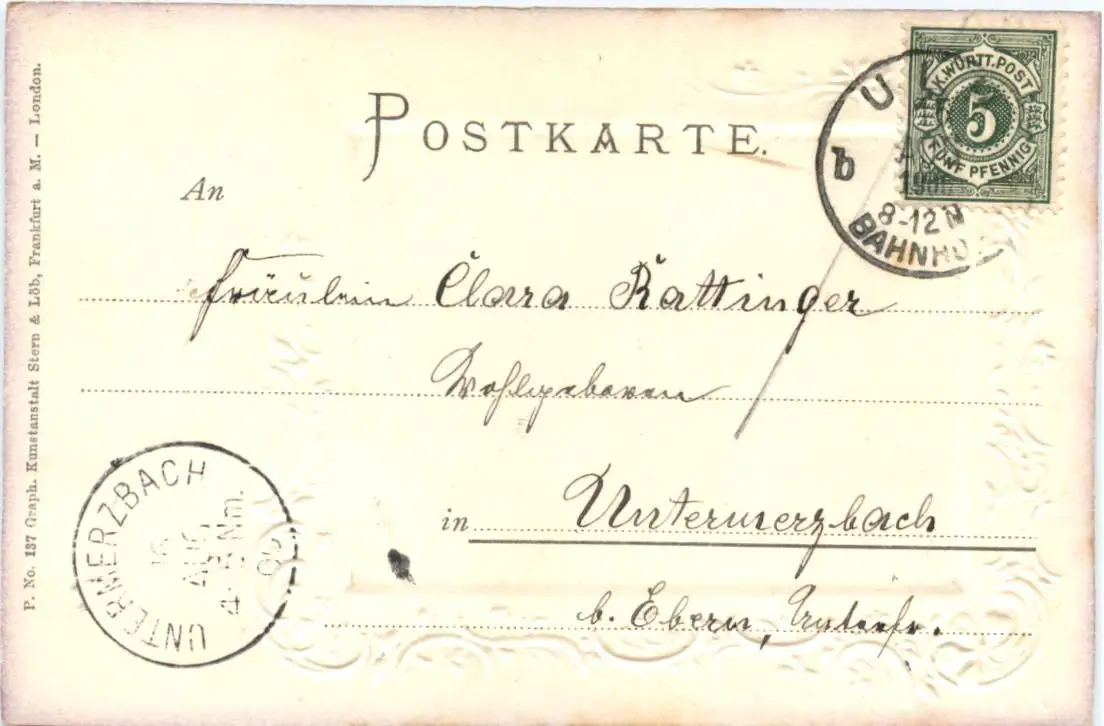 POSTKARTE.
K. WÜRTT. POST
5
FÜNF PFENNIG
U
b
1900
8-12 N
BAHNHO
An
Fräulein Clara Rattinger
Wohlgeboren
in Untermerzbach
b. Ebern, Unterfr.
UNTERMERZBACH
16
AUG
4-5 Nm.
00
P. No. 137 Graph. Kunstanstalt Stern & Löb, Frankfurt a. M. — London.